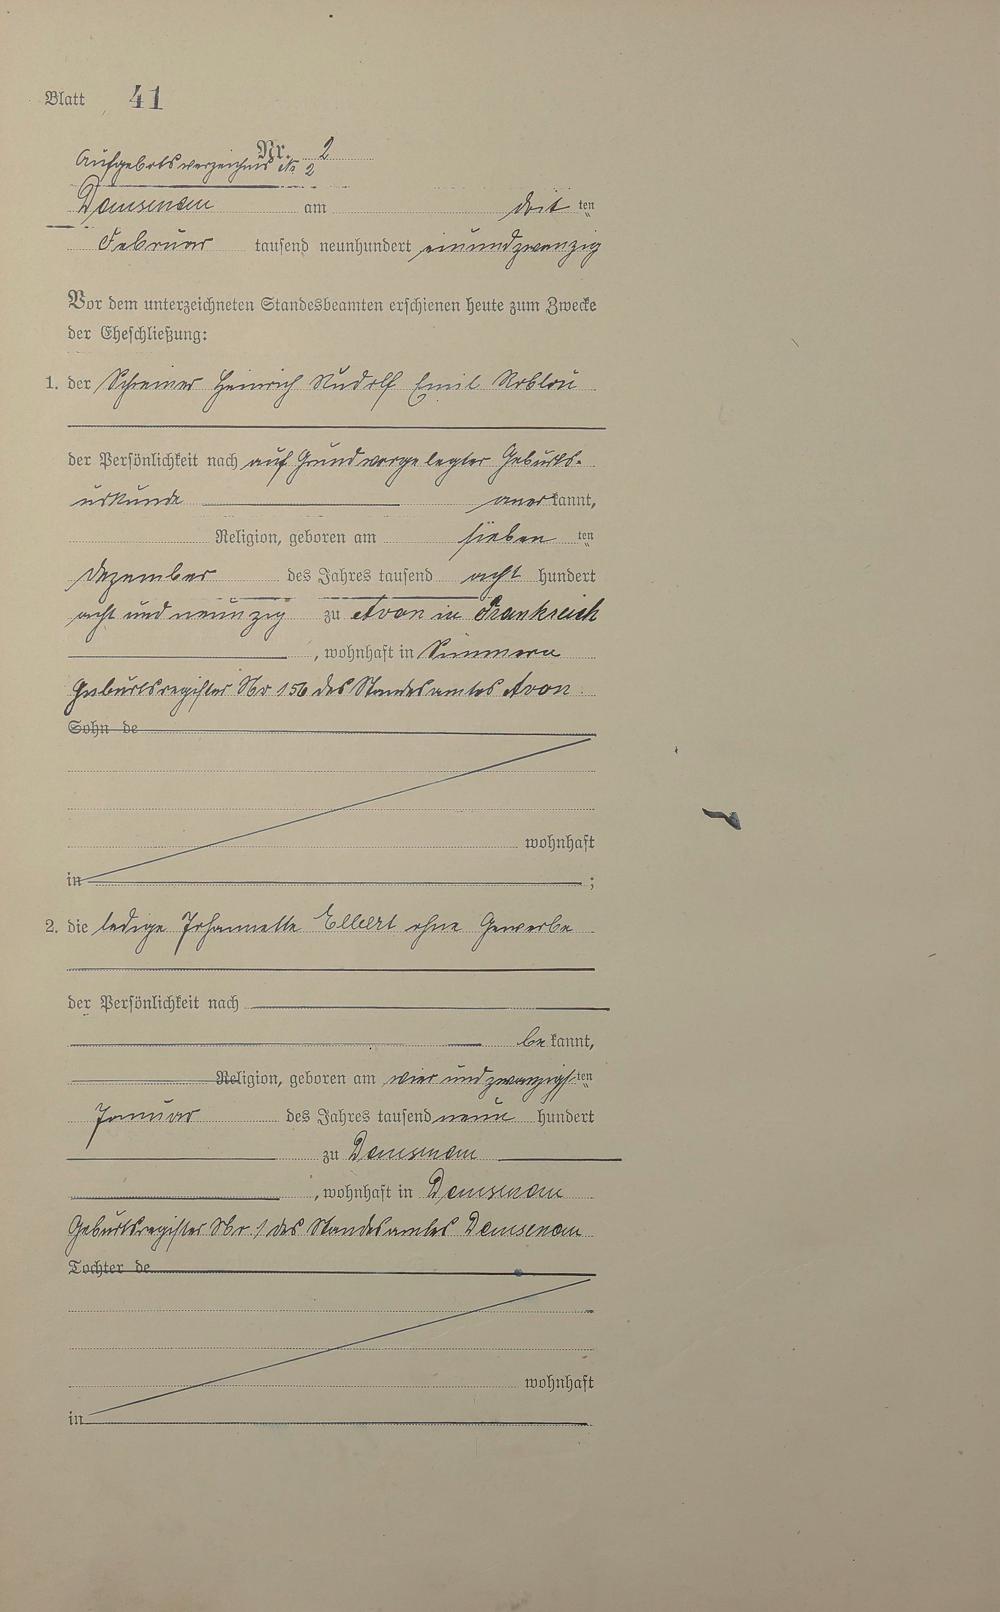 Blatt 41
Nr. 2
Aufgebotsverzeichnis No 2
am drit ten
Februar tausend neunhundert einundzwanzig
Vor dem unterzeichneten Standesbeamten erschienen heute zum Zwecke
der Eheschließung:
1. der Schreiner Heinrich Rudolf Emil
der Persönlichkeit nach auf Grund vorgelegter Geburts-
urkunde anerkannt,
Religion, geboren am sieben ten
Dezember des Jahres tausend acht hundert
acht und neunzig zu Avon in Frankreich
, wohnhaft in Simmern
Geburtsregister Nr 156 des Standesamtes Avon.
Sohn de
wohnhaft
in ;
2. die ledige Johannette Elbert ohne Gewerbe
der Persönlichkeit nach
bekannt,
Religion, geboren am vier und zwanzigsten
Januar des Jahres tausend neun hundert
zu
, wohnhaft in
Geburtsregister Nr 1 des Standesamtes
Tochter de
wohnhaft
in